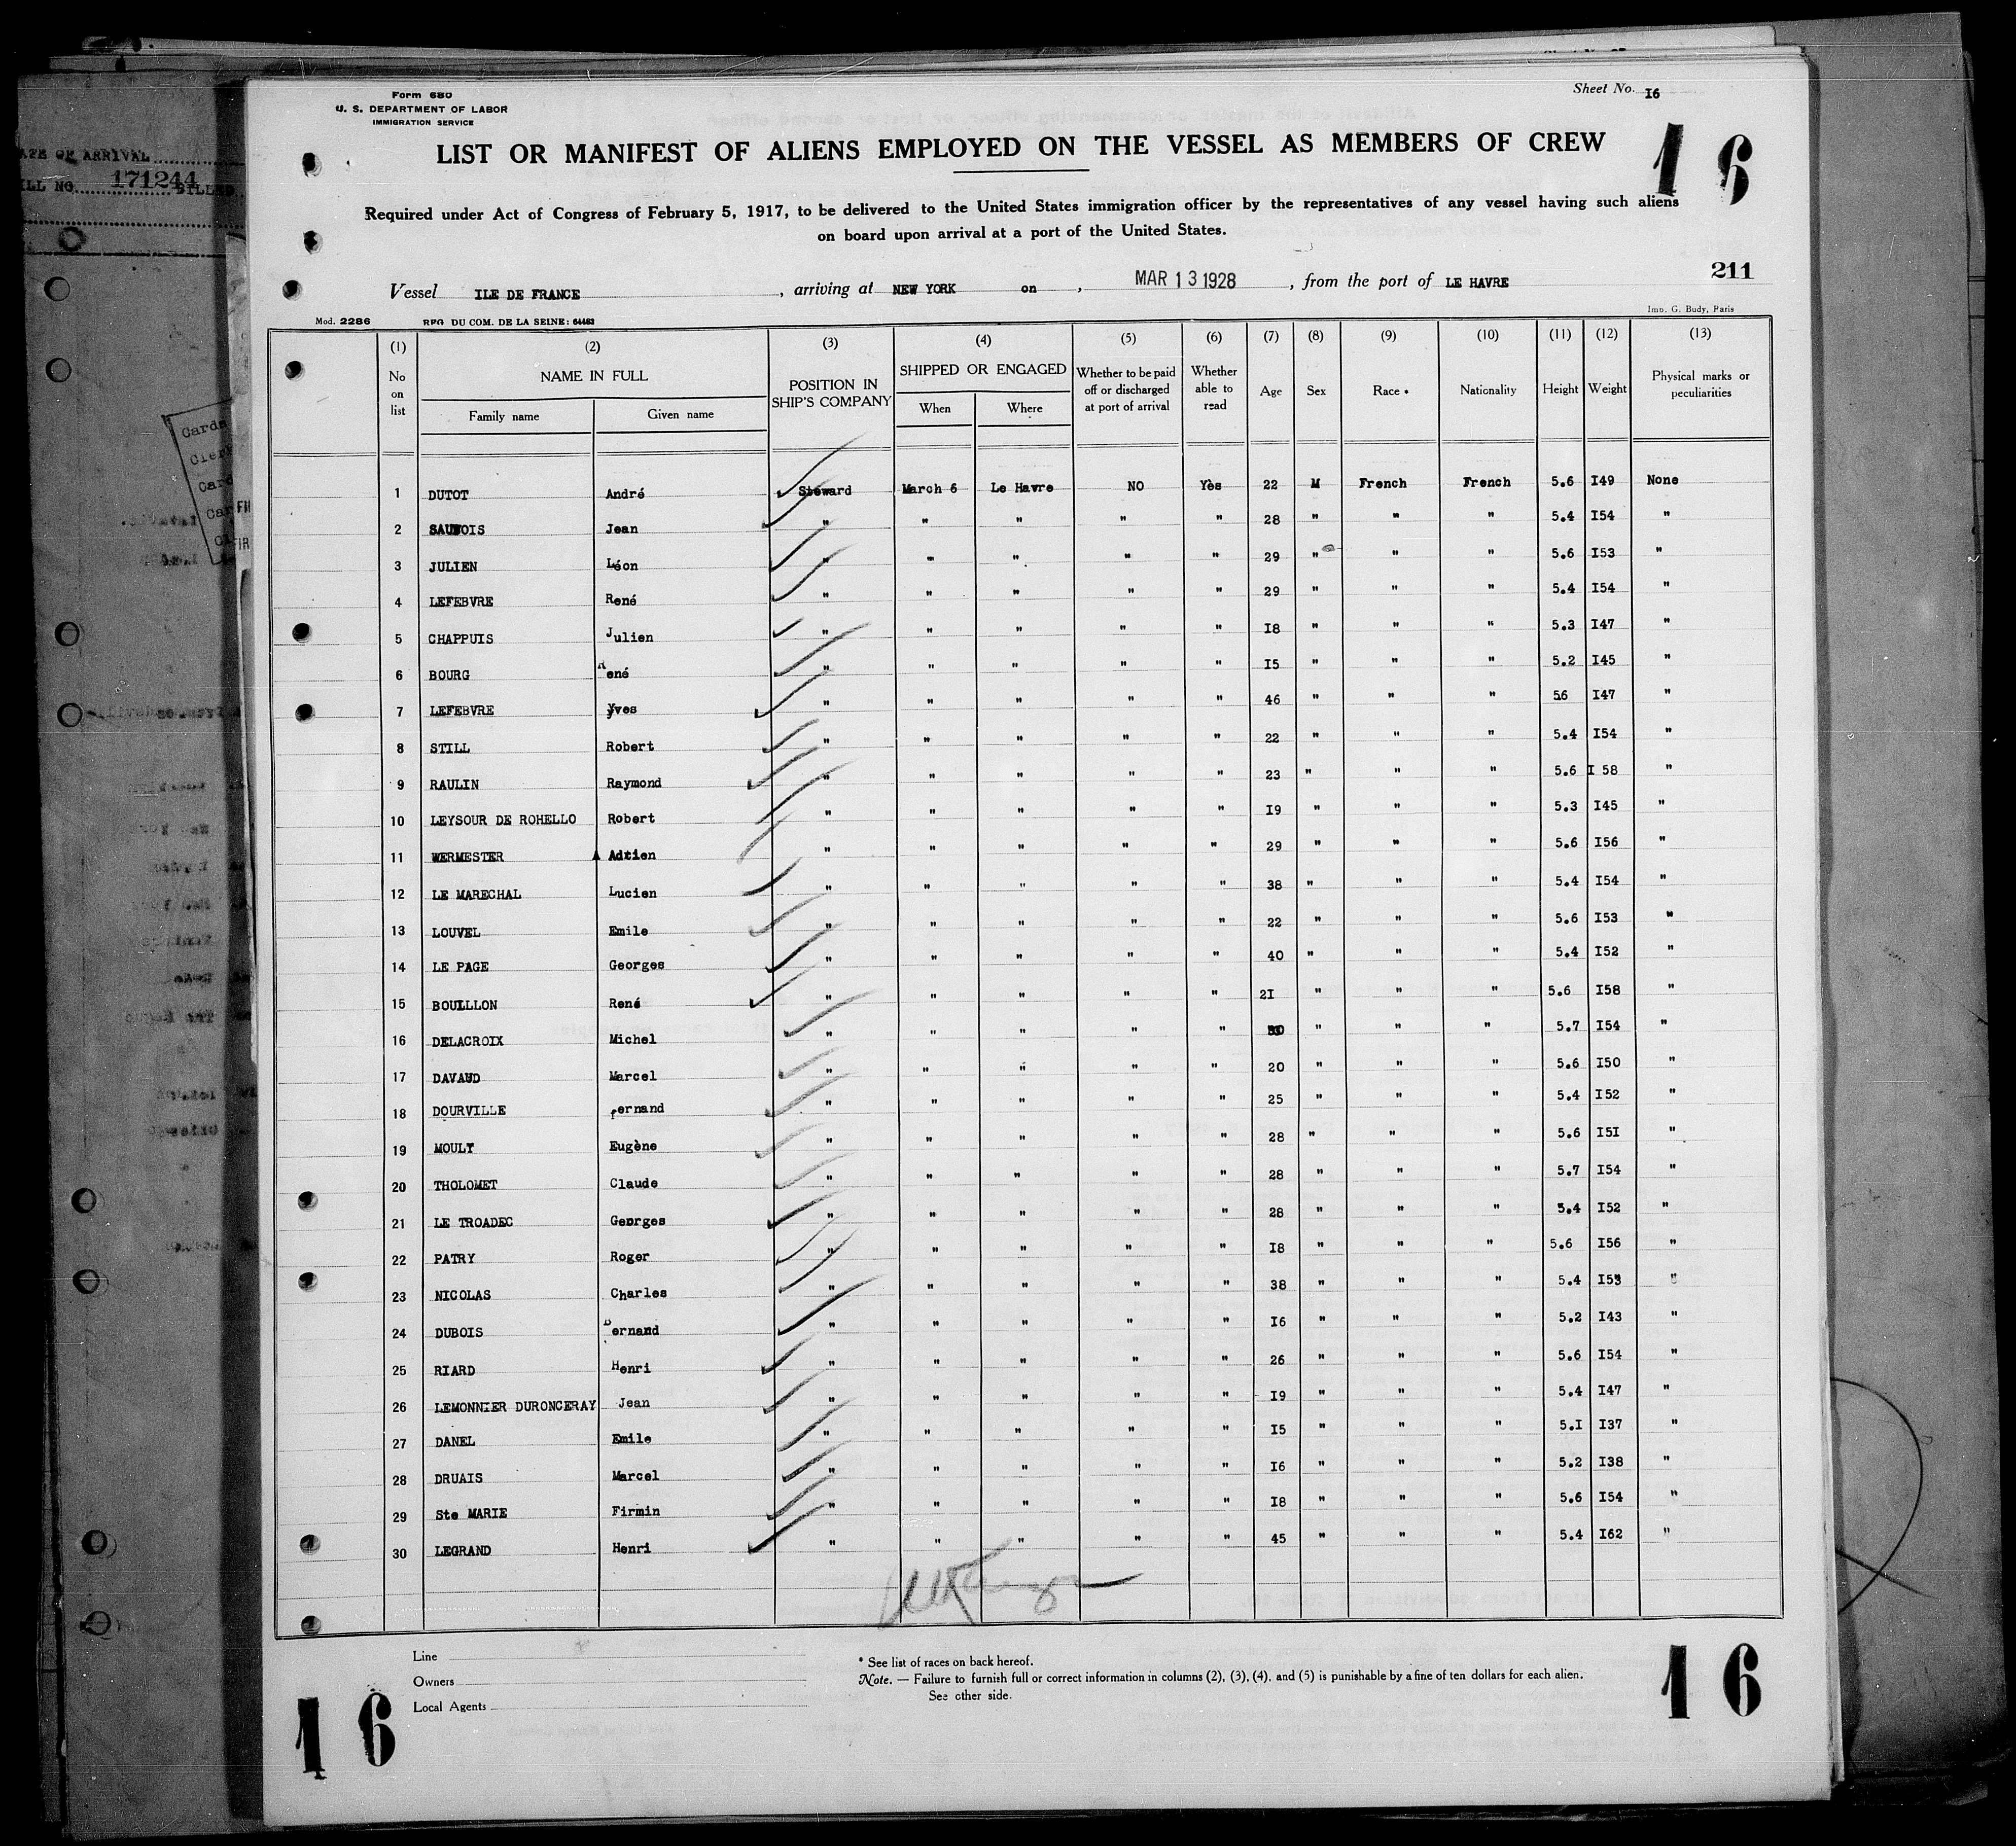 Form 680
U. S. DEPARTMENT OF LABOR
IMMIGRATION SERVICE
Sheet No. I6
LIST OR MANIFEST OF ALIENS EMPLOYED ON THE VESSEL AS MEMBERS OF CREW
16
Required under Act of Congress of February 5, 1917, to be delivered to the United States immigration officer by the representatives of any vessel having such aliens
on board upon arrival at a port of the United States.
211
Vessel ILE DE FRANCE, arriving at NEW YORK on, MAR 13 1928, from the port of LE HAVRE
Mod. 2286 REG DU COM. DE LA SEINE: 64483 Imp. G. Budy, Paris
(1) (2) (3) (4) (5) (6) (7) (8) (9) (10) (11) (12) (13)
No on list NAME IN FULL Family name Given name POSITION IN SHIP'S COMPANY SHIPPED OR ENGAGED When Where Whether to be paid off or discharged at port of arrival Whether able to read Age Sex Race * Nationality Height Weight Physical marks or peculiarities
1 DUTOT André Steward March 6 Le Havre NO Yès 22 M French French 5.6 I49 None
2 Jean " " " " " 28 " " " 5.4 I54 "
3 JULIEN Léon " " " " " 29 " " " 5.6 I53 "
4 LEFEBVRE René " " " " " 29 " " " 5.4 I54 "
5 CHAPPUIS Julien " " " " " I8 " " " 5.3 I47 "
6 BOURG René " " " " " I5 " " " 5.2 I45 "
7 LEFEBVRE Yves " " " " " 46 " " " 56 I47 "
8 STILL Robert " " " " " 22 " " " 5.4 I54 "
9 RAULIN Raymond " " " " " 23 " " " 5.6 I 58 "
10 LEYSOUR DE ROHELLO Robert " " " " " I9 " " " 5.3 I45 "
11 WERMESTER Adrien " " " " " 29 " " " 5.6 I56 "
12 LE MARECHAL Lucien " " " " " 38 " " " 5.4 I54 "
13 LOUVEL Emile " " " " " 22 " " " 5.6 I53 "
14 LE PAGE Georges " " " " " 40 " " " 5.4 I52 "
15 BOULLLON René " " " " " 2I " " " 5.6 I58 "
16 DELACROIX Michel " " " " " " " " 5.7 I54 "
17 DAVAUD Marcel " " " " " 20 " " " 5.6 I50 "
18 DOURVILLE Fernand " " " " " 25 " " " 5.4 I52 "
19 MOULT Eugène " " " " " 28 " " " 5.6 I5I "
20 THOLOMET Claude " " " " " 28 " " " 5.7 I54 "
21 LE TROADEC Georges " " " " " 28 " " " 5.4 I52 "
22 PATRY Roger " " " " " I8 " " " 5.6 I56 "
23 NICOLAS Charles " " " " " 38 " " " 5.4 I53 "
24 DUBOIS Bernand " " " " " I6 " " " 5.2 I43 "
25 RIARD Henri " " " " " 26 " " " 5.6 I54 "
26 LEMONNIER DURONCERAY Jean " " " " " I9 " " " 5.4 I47 "
27 DANEL Emile " " " " " I5 " " " 5.I I37 "
28 DRUAIS Marcel " " " " " I6 " " " 5.2 I38 "
29 Ste MARIE Firmin " " " " " I8 " " " 5.6 I54 "
30 LEGRAND Henri " " " " " 45 " " " 5.4 I62 "
Line
Owners
Local Agents
* See list of races on back hereof.
Note. — Failure to furnish full or correct information in columns (2), (3), (4), and (5) is punishable by a fine of ten dollars for each alien.
See other side.
16
16
OF ARRIVAL
171244